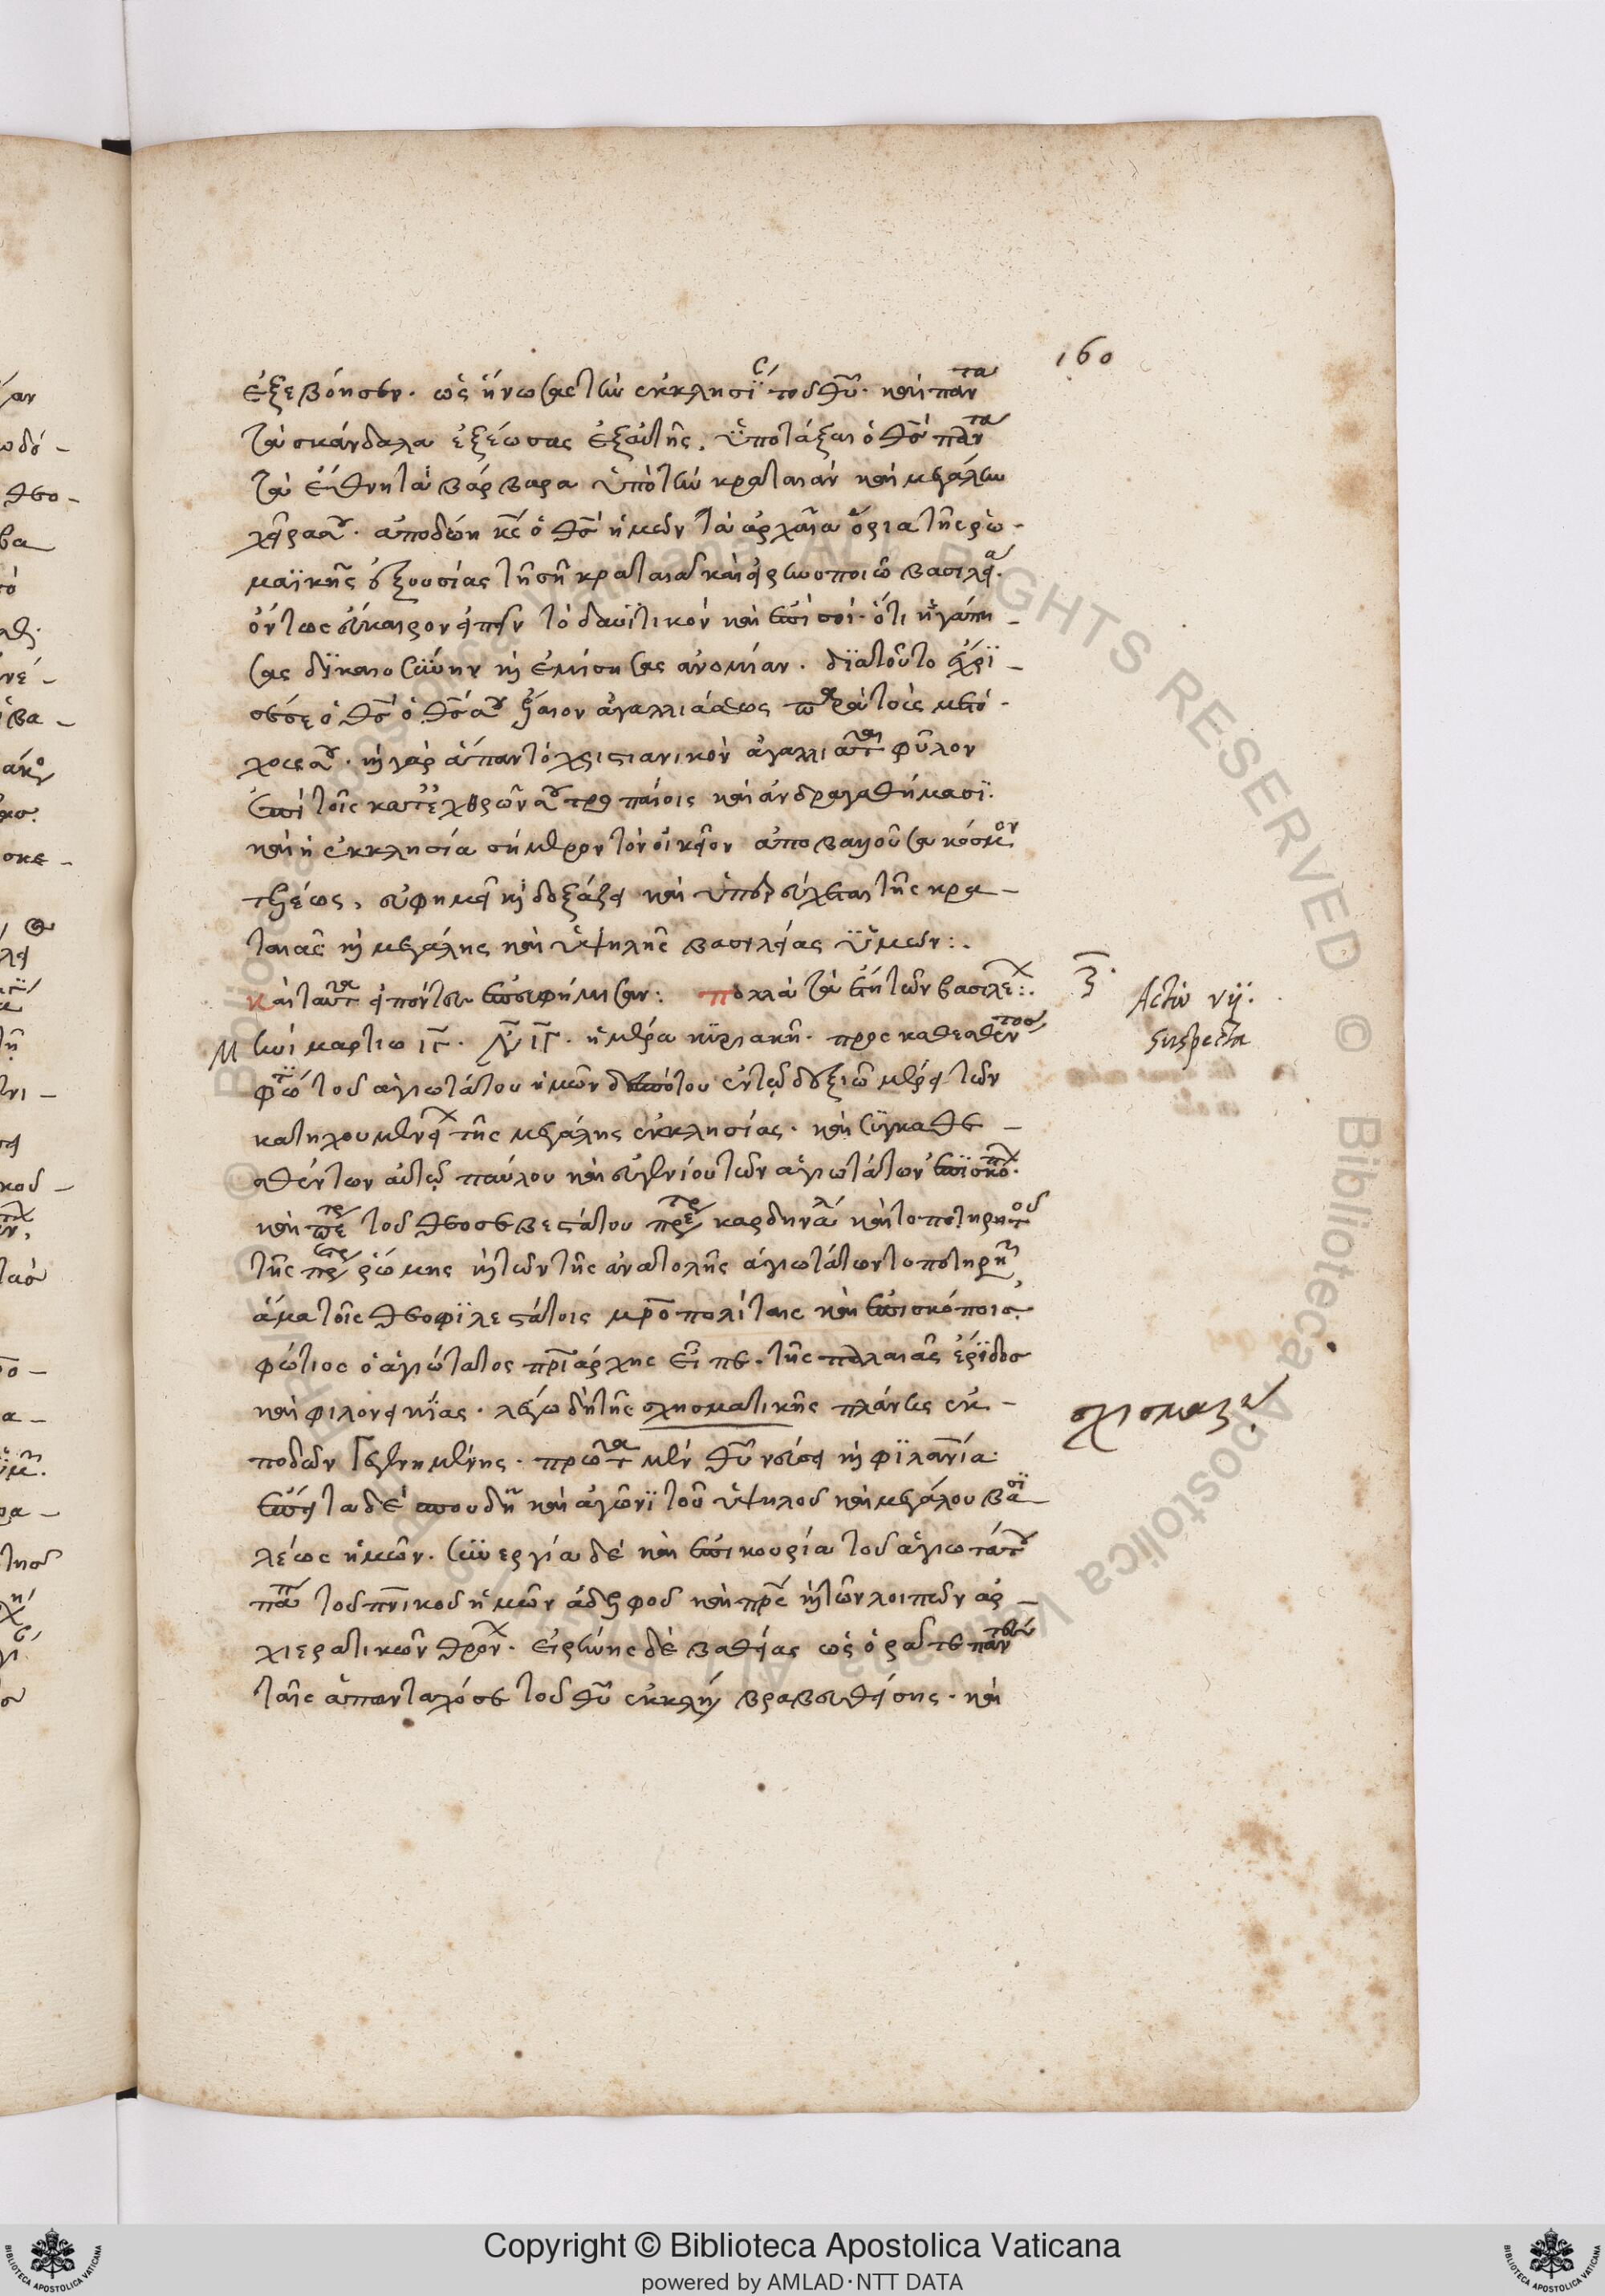 160
ἐξεβόησεν· ὡς ἥνωσας τὴν ἐκκλησίας τοῦ θῦ· καὶ πάντα
τὰ σκάνδαλα ἐξέωσας ἐξ αὐτῆς, ὑποτάξαι ὁ θς πάντα
τὰ ἔθνη τὰ βάρβαρα ὑπὸ τὴν κραταιὰν καὶ μεγάλην
χεῖρα σου· ἀποδώῃ κς ὁ θς ἡμῶν τὰ ἀρχαῖα ὅρια τῆς ῥω-
μαϊκῆς ἐξουσίας τῇ σῇ κραταιᾷ καὶ εἰρηνοποιῷ βασιλείᾳ.
ὄντως εὔκαιρον εἰπεῖν τὸ δαυϊτικὸν καὶ ἐπὶ σοί· ὅτι ἠγάπη-
σας δικαιοσύνην καὶ ἐμίσησας ἀνομίαν· διατοῦτο ἔχρι-
σέ σε ὁ θς ὁ θς σου ἔλαιον ἀγαλλιάσεως παρὰ τοὺς μετό-
χους σου· καὶ γὰρ ἅπαν τὸ χριστιανικὸν ἀγαλλιᾶται φῦλον
ἐπὶ τοῖς κατ' ἐχθρῶν σου τροπαίοις καὶ ἀνδραγαθήμασι·
καὶ ἡ ἐκκλησία σήμερον τὸν οἰκεῖον ἀπολαβοῦσα κόσμον
τελέως, εὐφημεῖ καὶ δοξάζει καὶ ὑπερεύχεται τῆς κρα-
ταιᾶς καὶ μεγάλης καὶ ὑψηλῆς βασιλείας ὑμῶν:.
καὶ ταῦτα εἰπόντες ἐπευφήμησαν: πολλὰ τὰ ἔτη τῶν βασιλέ:.
ζ.
Actio vij.
Suspecta
Μηνὶ μαρτίῳ ιγ· ἰνδ ιγ· ἡμέρᾳ κυριακῇ· προκαθεσθέντος
φωτί τοῦ ἁγιωτάτου ἡμῶν δεσπότου ἐν τῷ δεξιῷ μέρει τῶν
κατηχουμενείχ τῆς μεγάλης ἐκκλησίας· καὶ συγκαθε-
σθέντων αὐτῷ παύλου καὶ εὐγενίου τῶν ἁγιωτάτων ἐπισκόπ·
καὶ πέτρ τοῦ θεοσεβεστάτου πρεσ καρδηνάλ καὶ τοποτηρητοῦ
τῆς πρεσ ῥώμης καὶ τῶν τῆς ἀνατολῆς ἁγιωτάτων τοποτηρητ
ἅμα τοῖς θεοφιλεστάτοις μροπολίταις καὶ ἐπισκόποις,
φώτιος ὁ ἁγιώτατος πριάρχης εἶπε· τῆς παλαιᾶς ἔριδος
καὶ φιλονεικίας· λέγω δὴ τῆς σχισματικῆς πλάνης ἐκ-
σχισμα
ποδῶν γεγενημένης· πρῶτα μὲν θῦ νεύσει καὶ φιλανία·
ἔπειτα δὲ σπουδῇ καὶ ἀγῶνι τοῦ ὑψηλοῦ καὶ μεγάλου βασι-
λέως ἡμῶν· συνεργίᾳ δὲ καὶ ἐπικουρίᾳ τοῦ ἁγιωτάτου
πάπ τοῦ πνικοῦ ἡμῶν ἀδελφοῦ καὶ πρς καὶ τῶν λοιπῶν ἀρ-
χιερατικῶν θρόν· εἰρήνης δὲ βαθείας ὡς ὁρᾶτε πάντες
ταῖς ἁπανταχόσε τοῦ θῦ ἐκκλη βραβευθείσης· καὶ